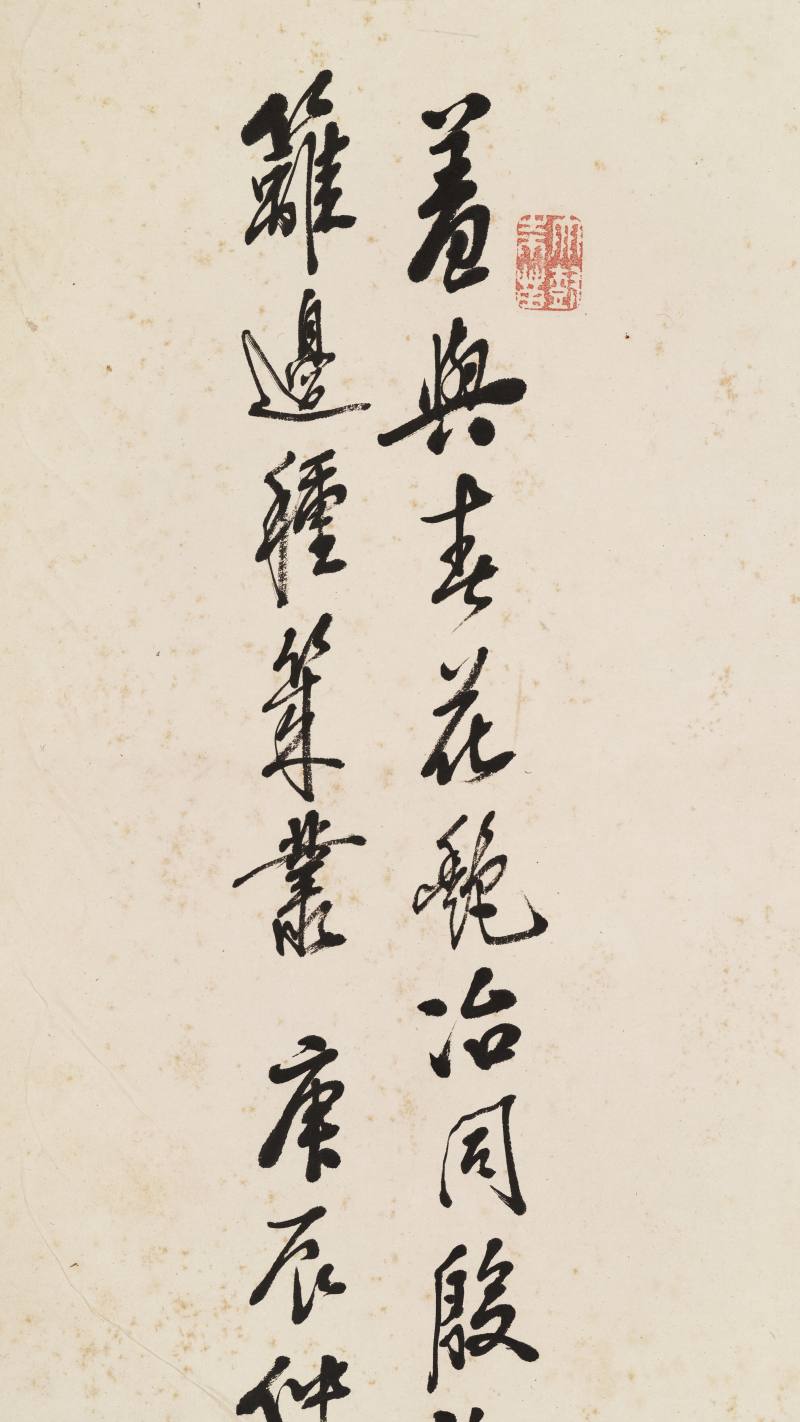 羞與春花艷冶同殷
籬邊種幾叢 庚辰仲